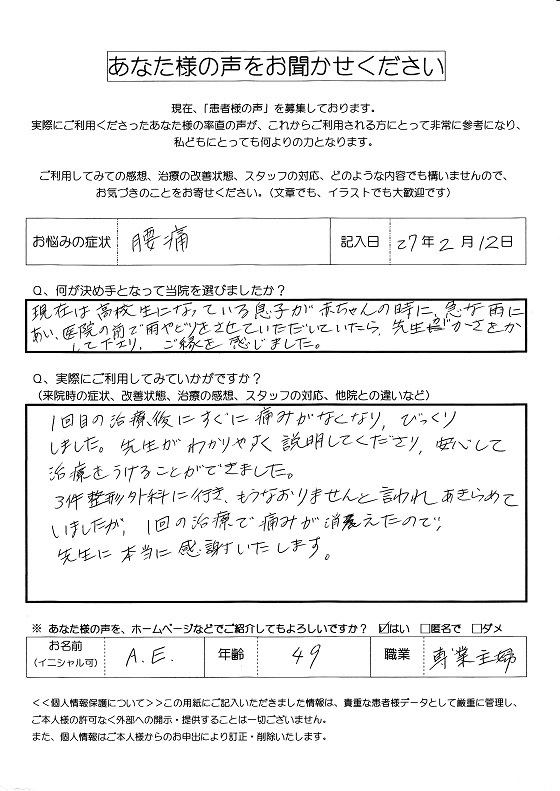 あなた様の声をお聞かせください
現在、「患者様の声」を募集しております。
実際にご利用くださったあなた様の率直の声が、これからご利用される方にとって非常に参考になり、
私どもにとっても何よりの力となります。
ご利用してみての感想、治療の改善状態、スタッフの対応、どのような内容でも構いませんので、
お気づきのことをお寄せください。(文章でも、イラストでも大歓迎です)
お悩みの症状 腰痛 記入日 27年2月12日
Q、何が決め手となって当院を選びましたか?
現在は高校生になっている息子が赤ちゃんの時に、急な雨に
あい、医院の前で雨やどりをさせていただいていたら、先生がかさをか
して下さり、ご縁を感じました。
Q、実際にご利用してみていかがですか?
(来院時の症状、改善状態、治療の感想、スタッフの対応、他院との違いなど)
1回目の治療後にすぐに痛みがなくなり、びっくり
しました。先生がわかりやすく説明してくださり、安心して
治療をうけることができました。
3件整形外科に行き、もうなおりませんと言われあきらめて
いましたが、1回の治療で痛みが消えたので、
先生に本当に感謝いたします。
※ あなた様の声を、ホームページなどでご紹介してもよろしいですか? ☑はい □匿名で □ダメ
お名前
(イニシャル可) A.E. 年齢 49 職業 専業主婦
<<個人情報保護について>>この用紙にご記入いただきました情報は、貴重な患者様データとして厳重に管理し、
ご本人様の許可なく外部への開示・提供することは一切ございません。
また、個人情報はご本人様からのお申出により訂正・削除いたします。